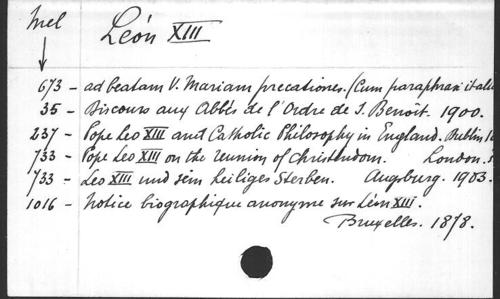 Mel
Léon XIII
673 - ad beatam V. Mariam precationes. (Cum paraphrasi
35 - Discours aux Abbés de l'Ordre de S. Benoît. 1900.
237 - Pope Leo XIII and Catholic Philosophy in England. Dublin,
733 - Pope Leo XIII on the reunion of Christendom. London.
733 - Leo XIII und sein heiliges Sterben. Augsburg. 1903.
1016 - Notice biographique anonyme sur Léon XIII.
Bruxelles. 1878.